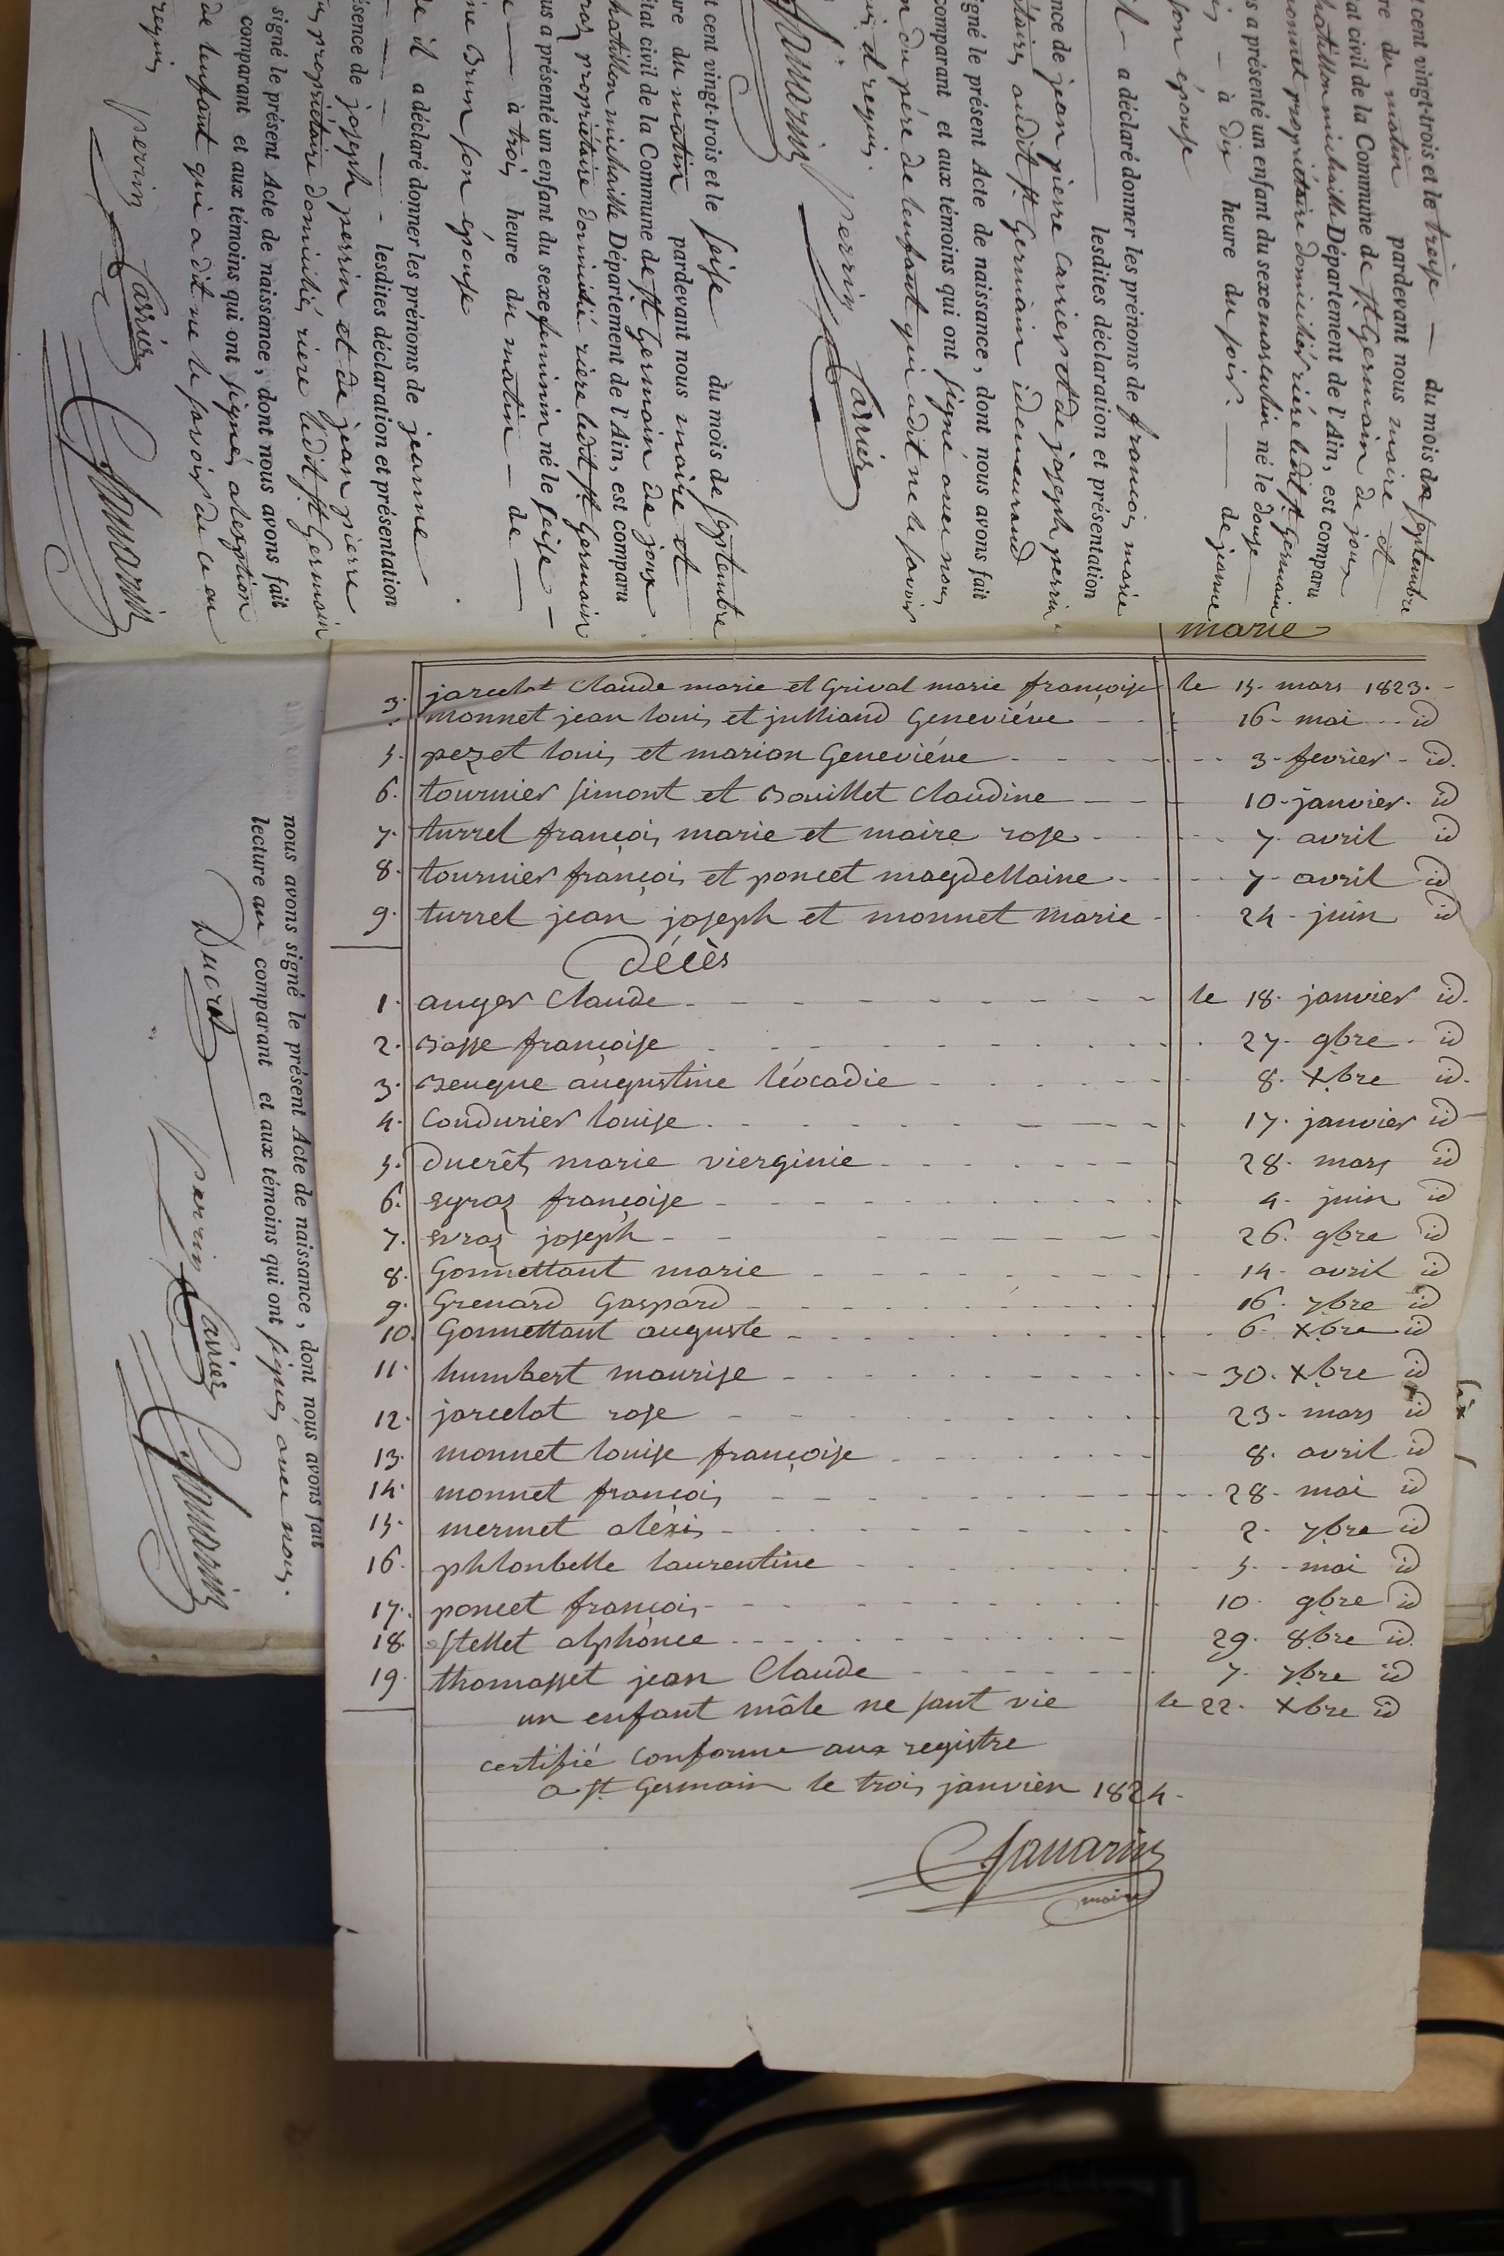 marie
3. jarcelot Claude marie et Grival marie françoise le 15. mars 1823.
monnet jean louis et julliand Geneviéve 16 mai id
5. pezet louis et marion Geneviéve 3 fevrier id.
6. tournier simont et Bouillet Claudine 10 janvier. id
7. turrel françois marie et maire rose 7 avril id
8. tournier françois et poncet magdellaine 7 avril id
9. turrel jean joseph et monnet marie 24 juin id
Décès
1. auger Claude le 18. janvier id.
2. Basse françoise 27 9bre id
3. Beugue augustine léocadie 8. Xbre id.
4. Coudurier louise 17. janvier id
5. Ducrêt marie vierginie 28. mars id
6. eyraz françoise 4. juin id
7. evraz joseph 26. 9bre id
8. Gonnettant marie 14 avril id
9. Grenard Gaspard 16. 7bre id
10. Gonnettant auguste 6 Xbre id
11. humbert maurise 30. Xbre id
12. jarcelot rose 23 mars id
13. monnet louise françoise 8. avril id
14. monnet françois 28. mai id
15. mermet aléxis 2. 7bre id
16. phlonbelle laurentine 5. mai id
17. poncet françois 10 9bre id
18. stellet alphonce 29. 8bre id.
19. thomasset jean Claude 7. 7bre id
un enfant mâle ne sant vie le 22. Xbre id
certifié conforme aux registre
a st. Germain le trois janvier 1824.
maire
t cent vingt-trois et le treise du mois de septembre
re du matin pardevant nous maire et
at civil de la Commune de st. Germain de joux
hatillon michaille Département de l'Ain, est comparu
monnet propriétaire domicilié riére ledit st. Germain
s a présenté un enfant du sexe masculin né le douse
à dix heure du soir. de jeanne
son épouse
il a déclaré donner les prénoms de françois marie
lesdites déclaration et présentation
nce de jean pierre Carrier et de joseph perrin
étaires audit st. Germain idemeurand
igné le présent Acte de naissance, dont nous avons fait
comparant et aux témoins qui ont signé avec nous
n du pére de lenfant qui adit ne le savoir
ni et requis
perrin Carrier
t cent vingt-trois et le seise du mois de septembre
ure du matin pardevant nous maire et
itat civil de la Commune de st. Germain de joux
hatillon michaille Département de l'Ain, est comparu
raz propriétaire domicilié rière ledit st. Germain
us a présenté un enfant du sexe feminin né le seise
à trois heure du matin de
ne Brun son épouse
de il a déclaré donner les prénoms de jeanne
lesdites déclaration et présentation
ésence de joseph perrin et de jean pierre
propriétaire domiciliés riere ledit st. Germain
signé le présent Acte de naissance, dont nous avons fait
comparant et aux témoins qui ont signés aléxption
de lenfant qui a dit ne le savoir de ce en
requis
perrin Carrier
nous avons signé le présent Acte de naissance, dont nous avons fait
lecture au comparant et aux témoins qui ont signés avec nous.
Ducrêt perrin Carrier